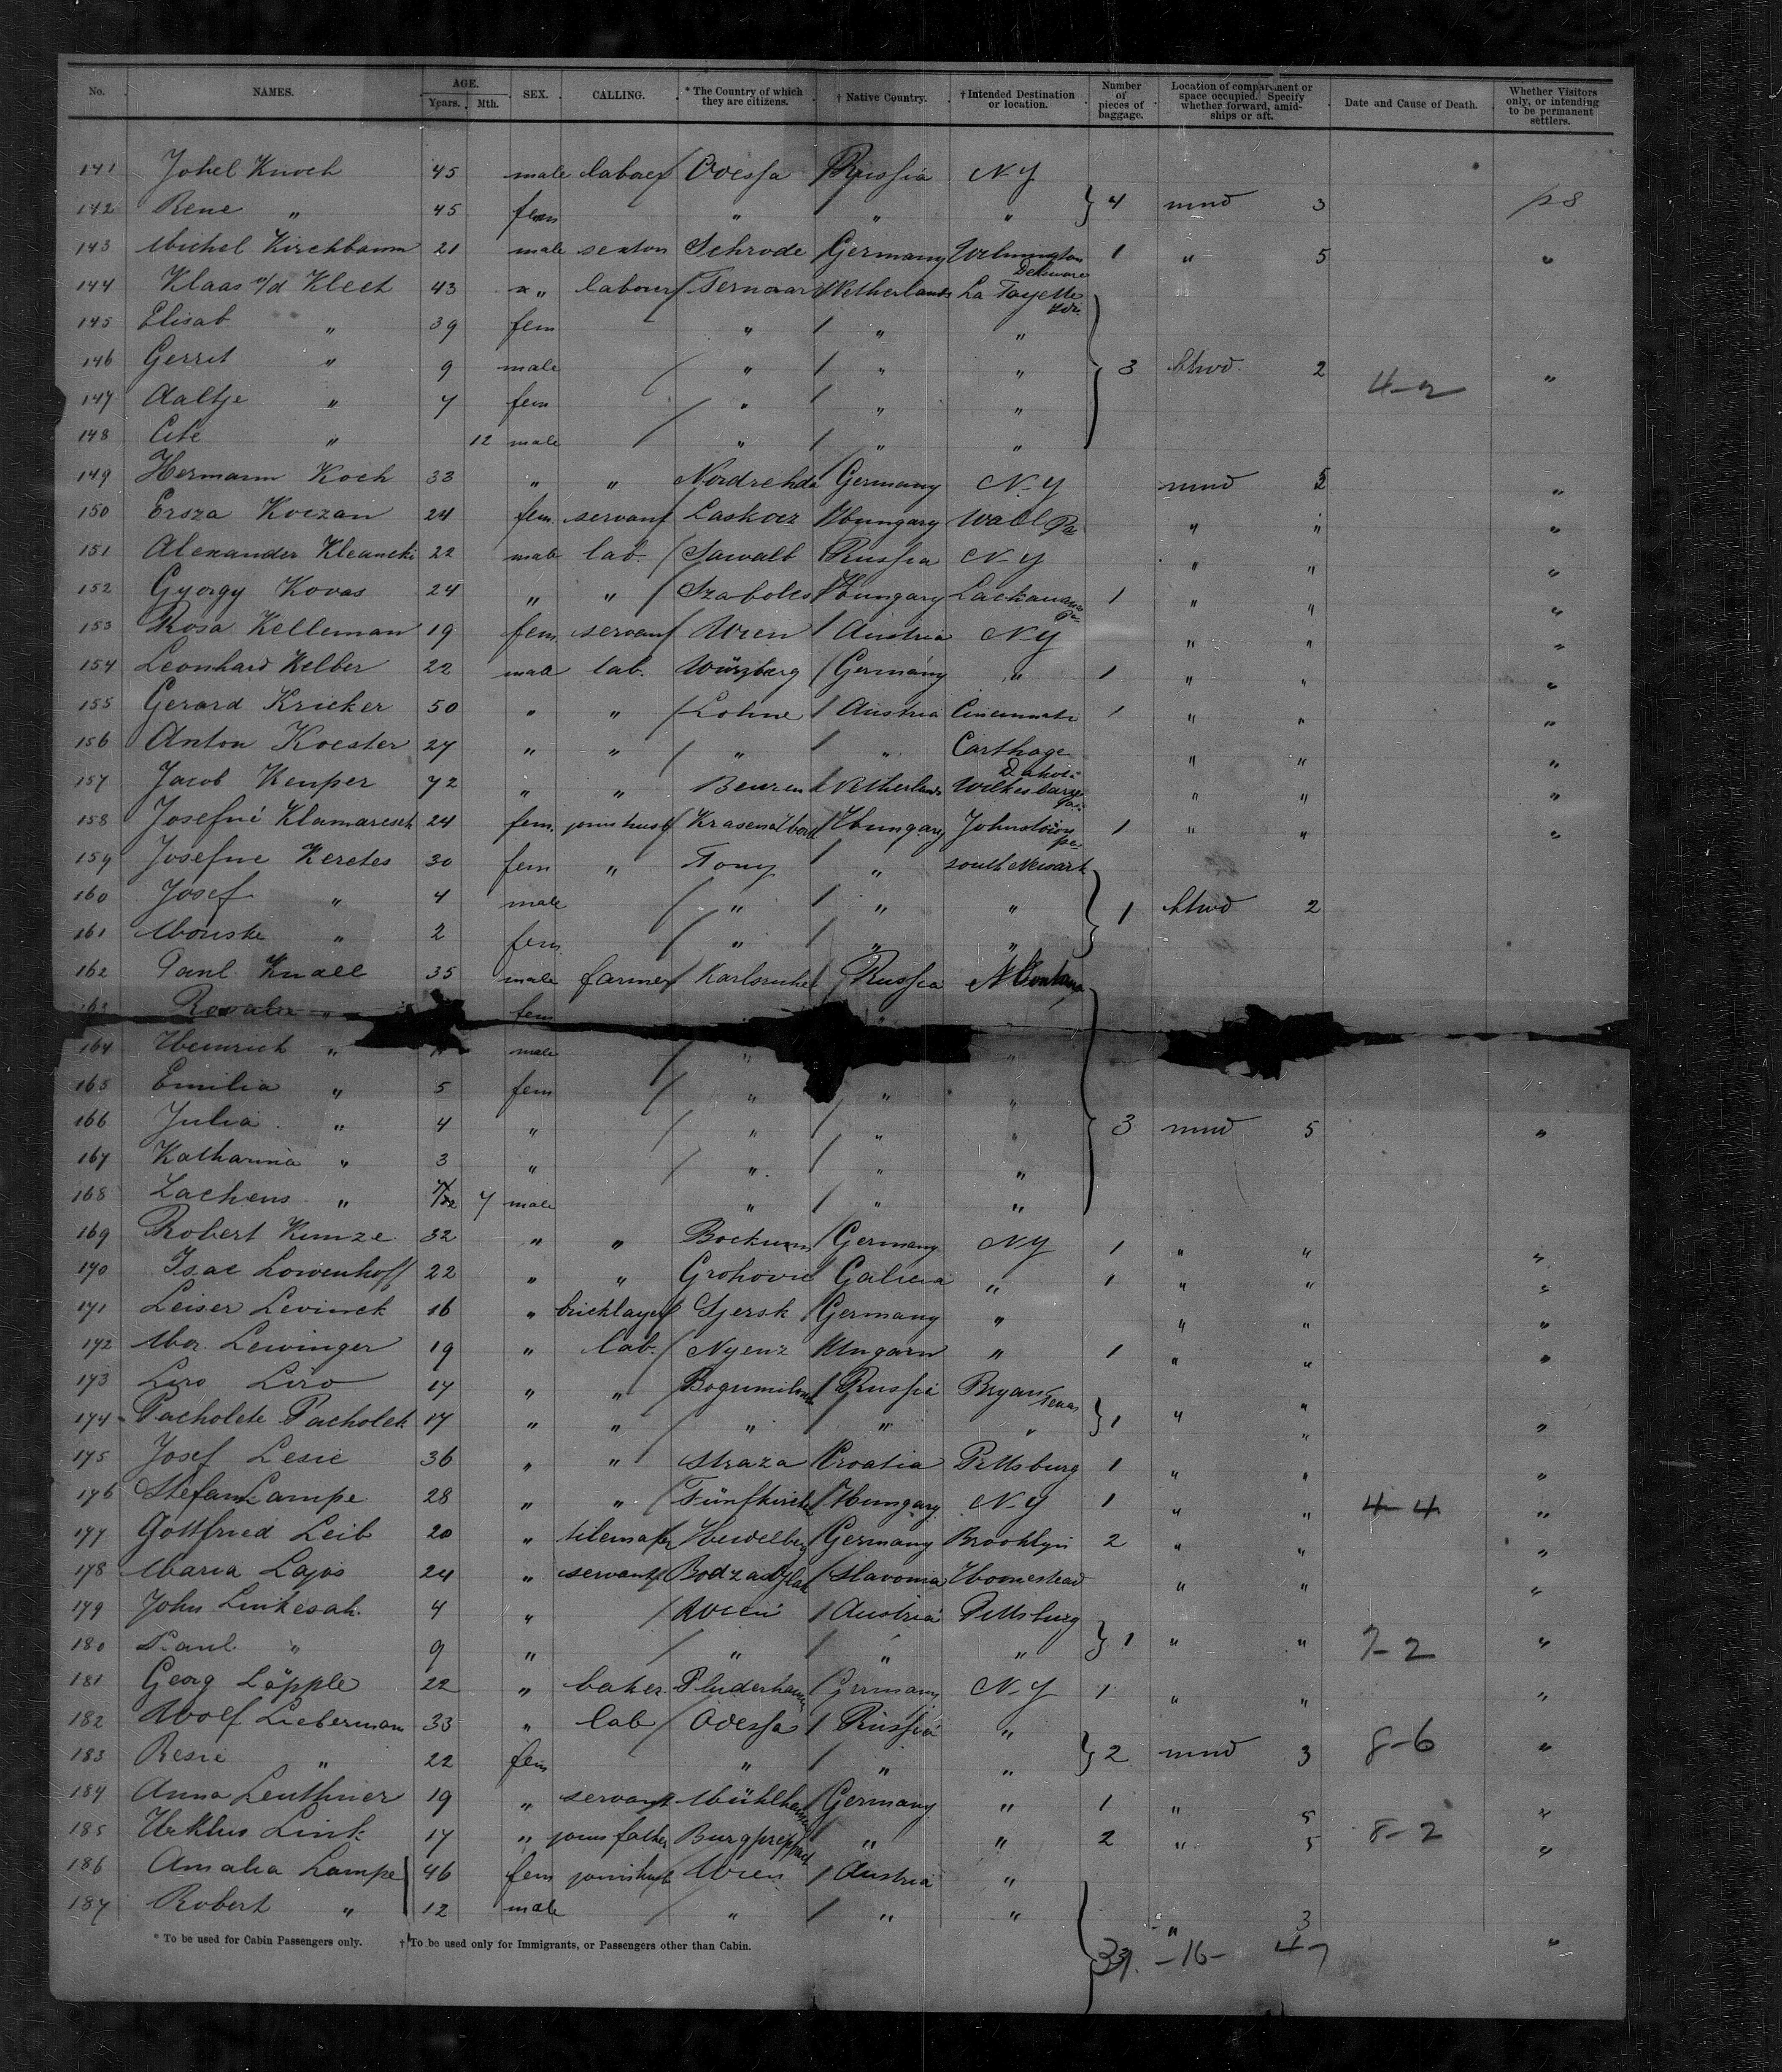 No. NAMES. AGE. Years. Mth. SEX. CALLING. * The Country of which they are citizens. † Native Country. † Intended Destination or location. Number of pieces of baggage. Location of compartment or space occupied. Specify whether forward, amidships or aft. Date and Cause of Death. Whether Visitors only, or intending to be permanent settlers.
141 Johel Knoch 45 male labour Odessa Russia N.Y
142 Rene " 45 fem " " " 4 mnd 3
143 Michel Kirchbaum 21 male sexton Schrode Germany Wilmington Delaware 1 " 5 "
144 Klaas v/d Kleet 43 " labourer Ternaar Netherlands La Fayette
145 Elisab " 39 fem " " "
146 Gerrit " 9 male " " " 3 2 "
147 Aaltje " 7 fem " " " 4-2
148 " 12 male " " "
149 Hermann Koch 33 " " Germany N.Y mnd "
150 Ersza Koczan 24 fem. servant Laskocz Hungary Pa " " "
151 Alexander 22 male lab. Suwalb Russia N-Y " " "
152 Gyorgy Kovas 24 " " Szabolcs Hungary Lackawana Pa 1 " " "
153 Rosa Kelleman 19 fem. servant Wien Austria N-Y " " "
154 Leonhard Kelber 22 male lab. Würzburg Germany " 1 " " "
155 Gerard Kricker 50 " " Lohne Austria Cincinnati 1 " " "
156 Anton Koester 27 " " " " Carthage " " "
157 Jacob Kenper 72 " " Beuren Netherlands Wilkesbarre " " "
158 Josefné Klamaresch 24 fem. joins husb Hungary Johnstown pa 1 " " "
159 Josefne Keretes 30 fem " Tony " south Newark
160 Josef " 4 male " " " 1 2
161 " 2 fem " " "
162 Paul Knall 35 male farmer Karlsruhe Russia
163 Rosalie " fem
164 Heinrich " male " "
165 Emilia " 5 fem " " "
166 Julia " 4 " " " " 3 mnd 5 "
167 Katharina " 3 " " " "
168 Zacheus " 7 male " " "
169 Robert Kunze 32 " " Bockum Germany N.Y 1 " " "
170 Isac Lowenhoff 22 " " Grohovic Galicia " 1 " " "
171 Leiser Levinek 16 " bricklayer Sjersk Germany " " " "
172 Mor. Lewinger 19 " lab. Nyenz Ungarn " 1 " " "
173 Liro Liro 17 " " Russia Bryan Texas " "
174 Pacholek Pacholek 17 " " " " " 1 " "
175 Josef Lesic 36 " " Straza Croatia Pittsburg 1 " " "
176 Stefan Lampe 28 " " Fünfkirchen Hungary N-Y 1 " " 4-4 "
177 Gottfried Leib 20 " tilemaker Heidelberg Germany Brooklyn 2 " " "
178 Maria Lajos 24 " servant Slavonia Homestead " " "
179 John Linkesah 4 " Wien Austria Pittsburg
180 Paul " 9 " " " " 1 " " 7-2 "
181 Georg Läpple 22 " baker Pluderhausen Germany N.Y 1 " " "
182 Wolf Lieberman 33 " lab Odessa Russia "
183 Resie " 22 fem " " " 2 mnd 3 8-6 "
184 Anna Leuthner 19 " servant Mühlhausen Germany " 1 " 5 "
185 Link 17 " joins father Burgpreppach " " 2 " 5 8-2 "
186 Amalia Lampe 46 fem joins husb Wien Austria "
187 Robert " 12 male " " " " 3 "
* To be used for Cabin Passengers only. † To be used only for Immigrants, or Passengers other than Cabin.
-16- 47